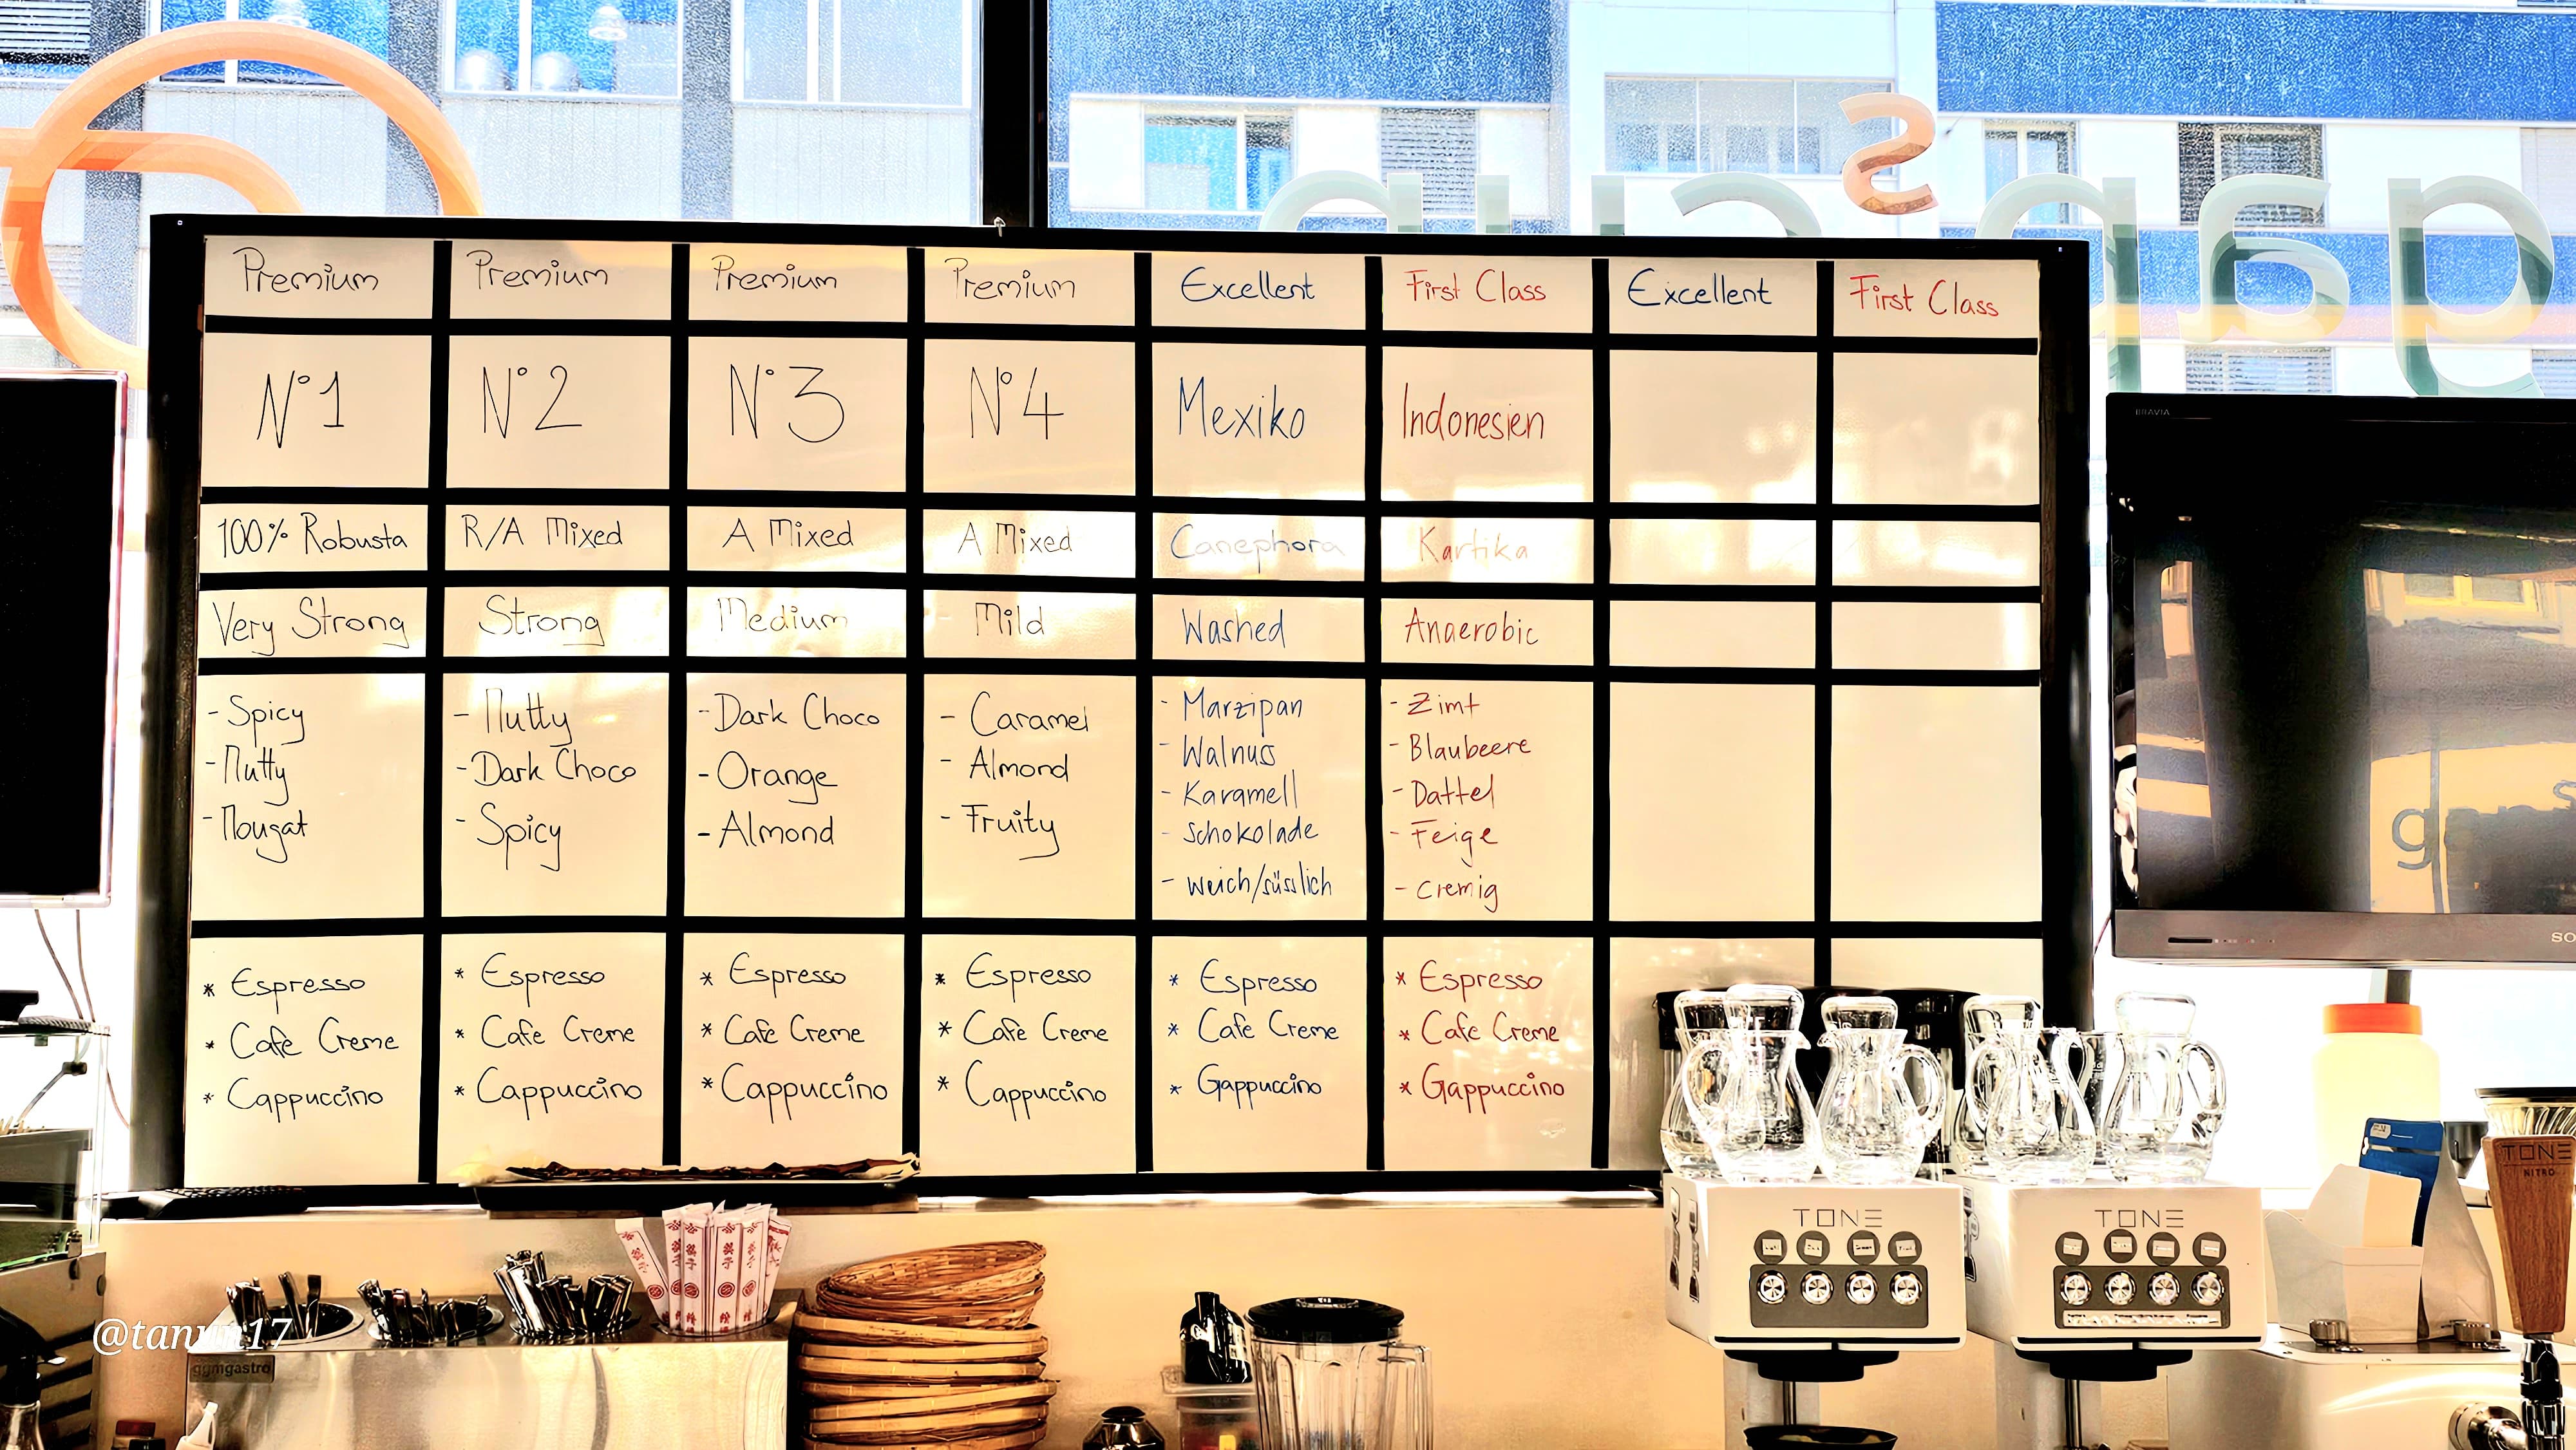 Premium Premium Premium Premium Excellent First Class Excellent First Class
N°1 N°2 N°3 N°4 Mexiko Indonesien
100% Robusta R/A Mixed A Mixed A Mixed Canephora Kartika
Very Strong Strong Medium Mild Washed Anaerobic
- Spicy
- Nutty
- Nougat
- Nutty
- Dark Choco
- Spicy
- Dark Choco
- Orange
- Almond
- Caramel
- Almond
- Fruity
- Marzipan
- Walnuss
- Karamell
- Schokolade
- weich/süsslich
- Zimt
- Blaubeere
- Dattel
- Feige
- cremig
* Espresso
* Cafe Creme
* Cappuccino
* Espresso
* Cafe Creme
* Cappuccino
* Espresso
* Cafe Creme
* Cappuccino
* Espresso
* Cafe Creme
* Cappuccino
* Espresso
* Cafe Creme
* Gappuccino
* Espresso
* Cafe Creme
* Gappuccino
BRAVIA
TONE
TONE
TONE
NITRO
ggmgastro